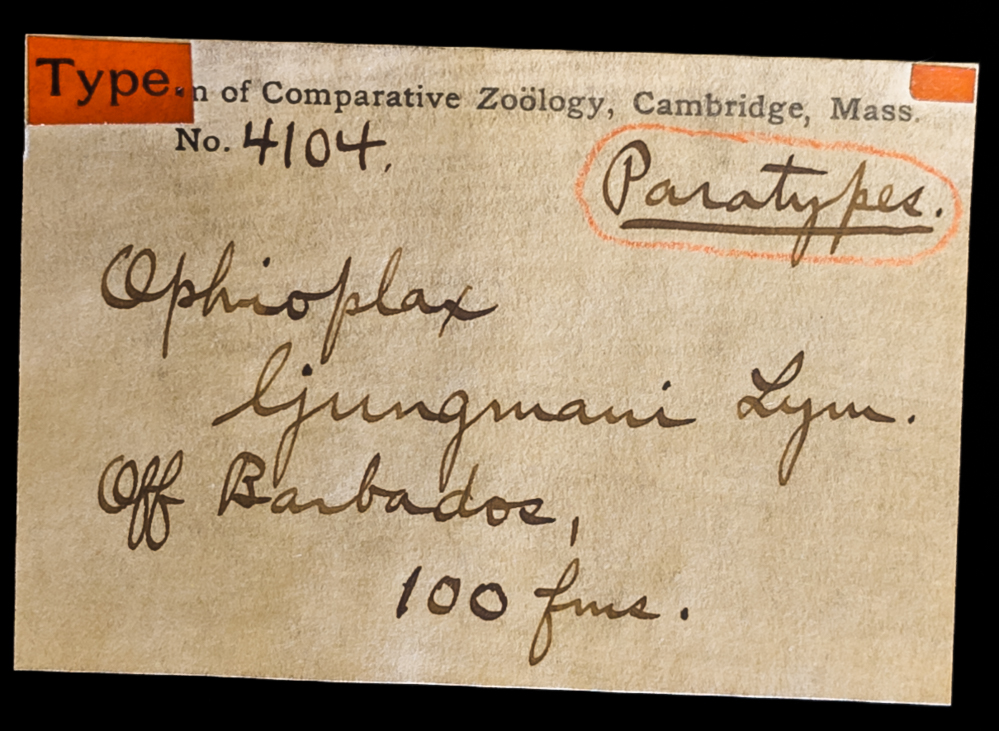 Type. m of Comparative Zoölogy, Cambridge, Mass.
No. 4104.
Paratypes.
Ophioplax
ljungmani Lym.
Off Barbados,
100 fms.